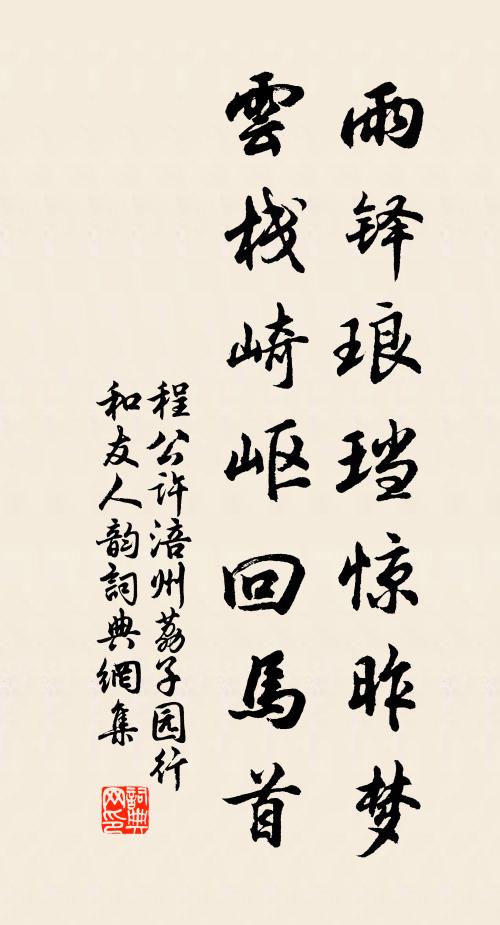 雨铎琅珰惊昨梦
雲栈崎岖回馬首
程公许涪州荔子园行
和友人韵詞典網集
詞典網印